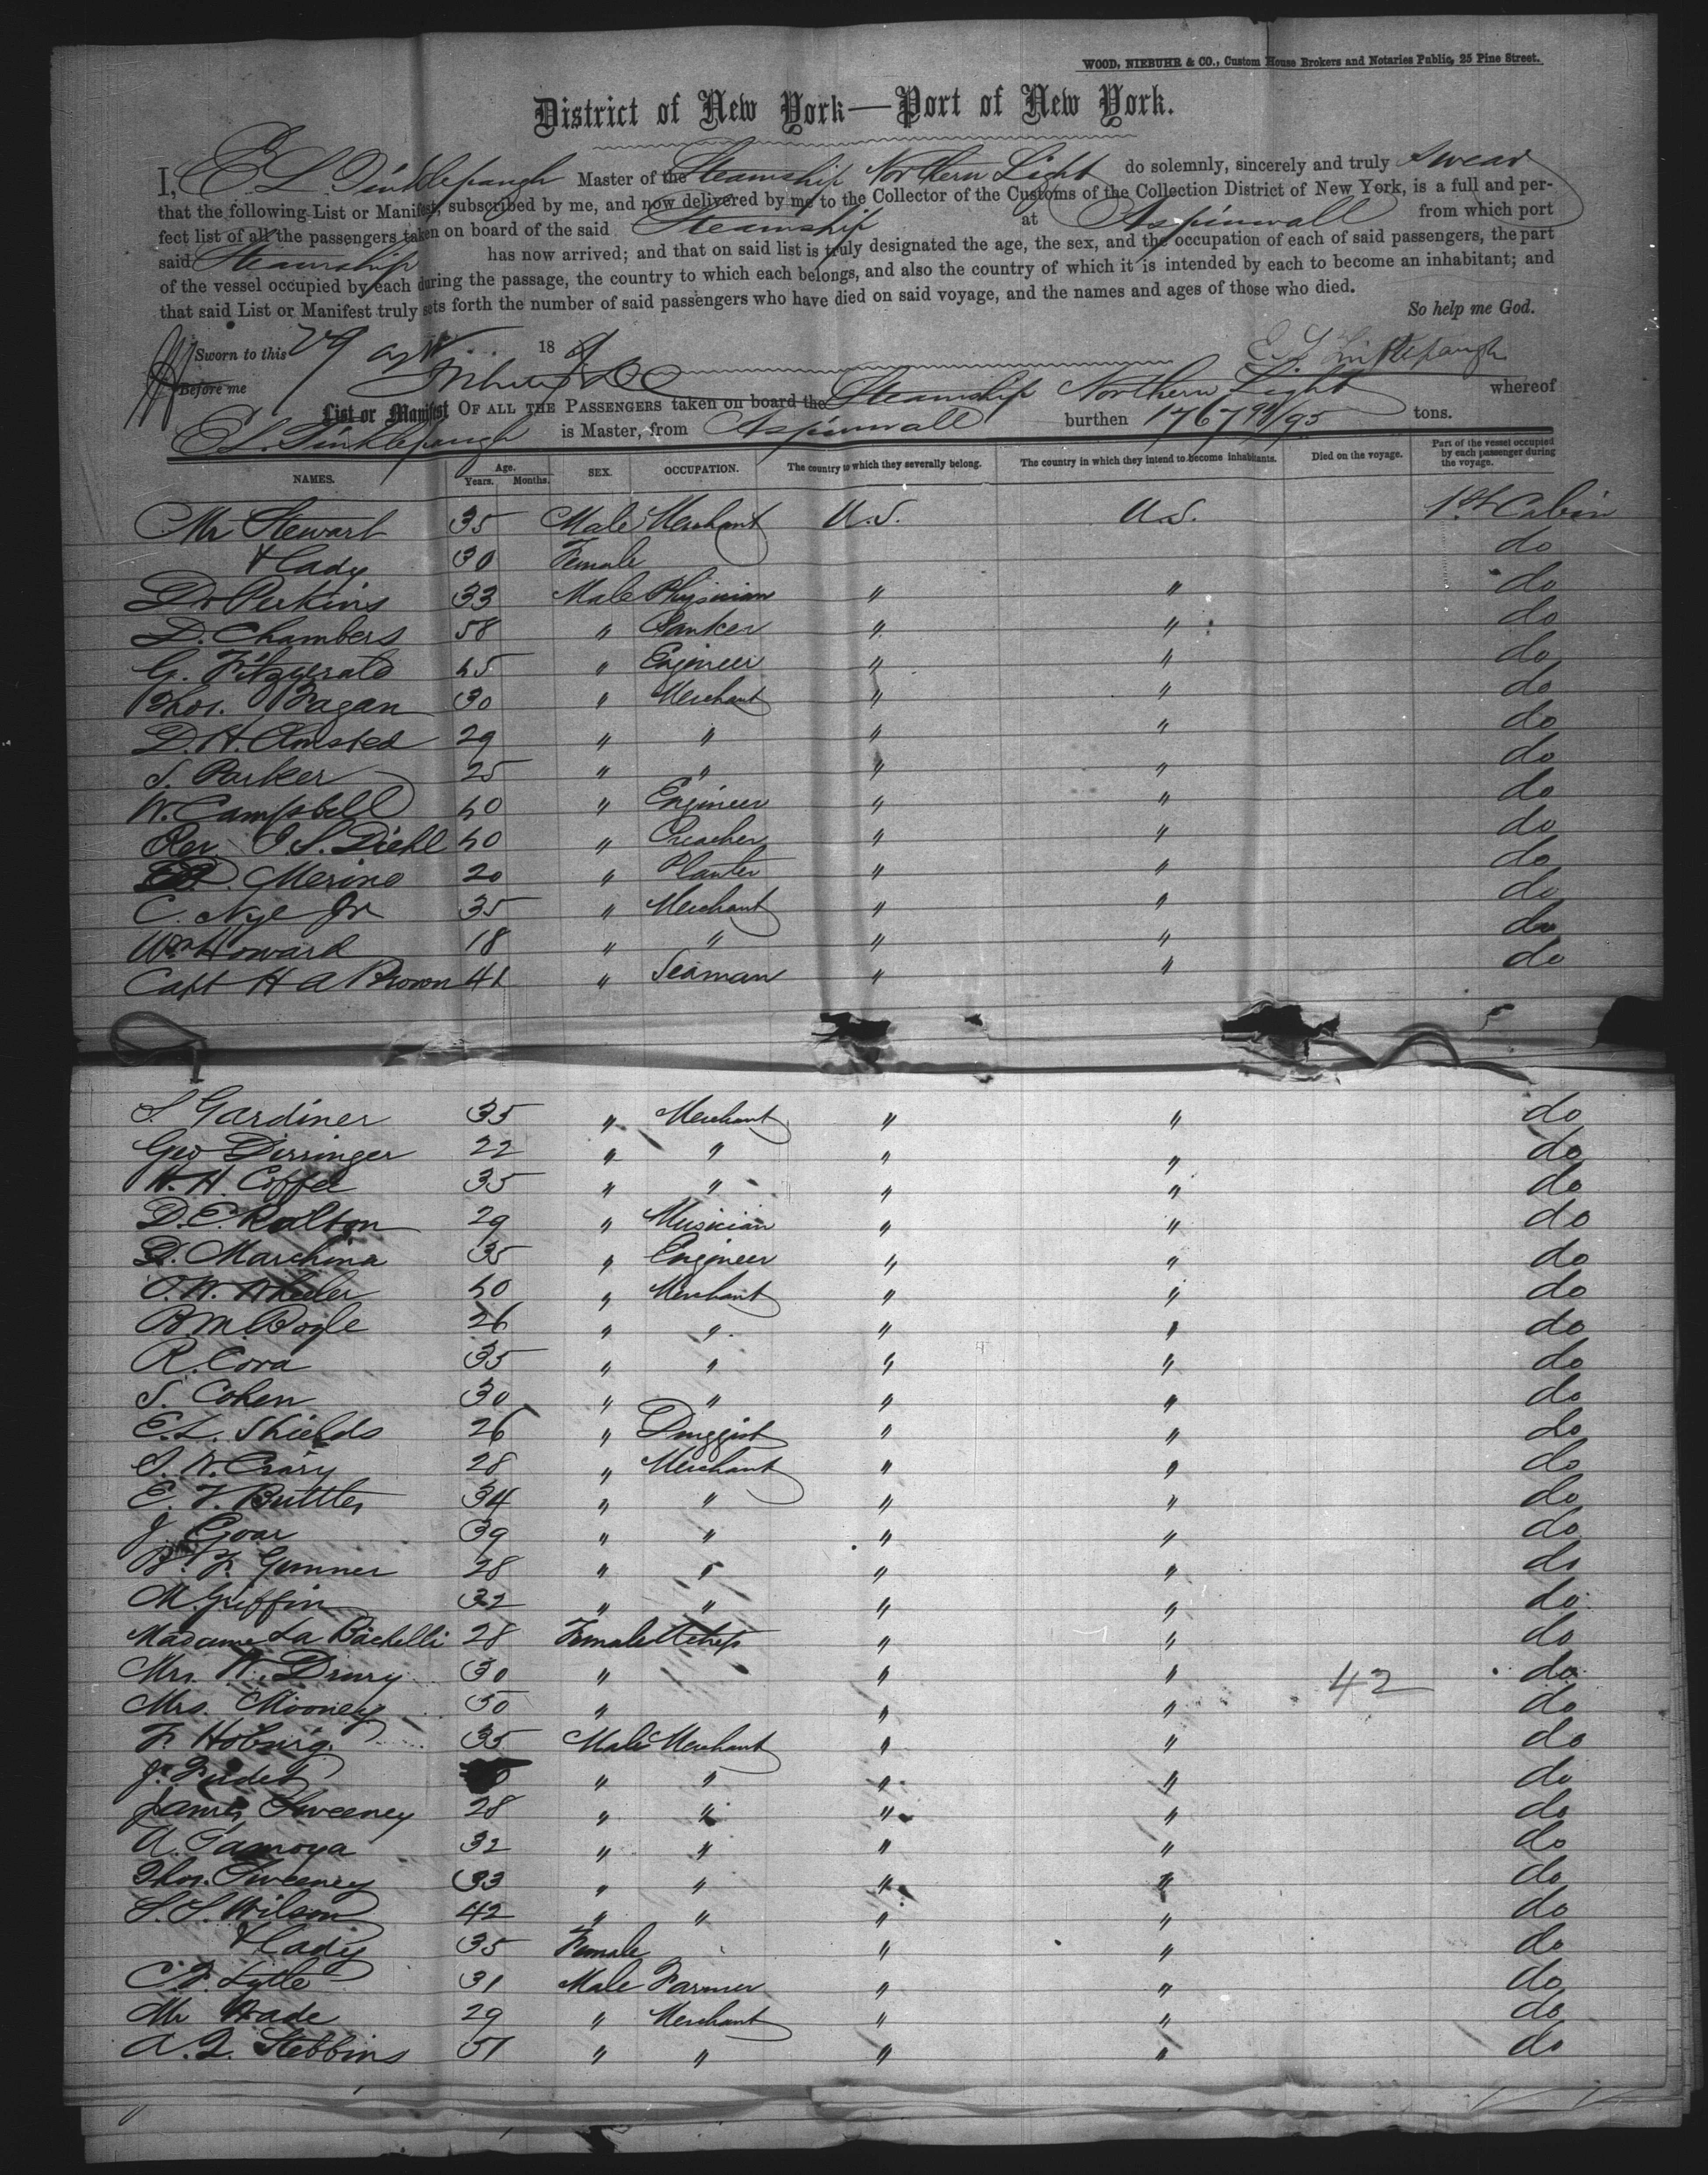 WOOD, NIEBUHR & CO., Custom House Brokers and Notaries Public, 25 Pine Street.
District of New York—Port of New York.
I, E L Tinklepaugh Master of the Steamship Northern Light do solemnly, sincerely and truly swear
that the following List or Manifest, subscribed by me, and now delivered by me to the Collector of the Customs of the Collection District of New York, is a full and per-
fect list of all the passengers taken on board of the said Steamship at Aspinwall from which port
said Steamship has now arrived; and that on said list is truly designated the age, the sex, and the occupation of each of said passengers, the part
of the vessel occupied by each during the passage, the country to which each belongs, and also the country of which it is intended by each to become an inhabitant; and
that said List or Manifest truly sets forth the number of said passengers who have died on said voyage, and the names and ages of those who died.
So help me God.
Sworn to this 29 18 E L Tinklepaugh
Before me
List or Manifest OF ALL THE PASSENGERS taken on board the Steamship Northern Light whereof
E L. Tinklepaugh is Master, from Aspinwall burthen 1767 98/95 tons.
NAMES. Age. Years. Months. SEX. OCCUPATION. The country to which they severally belong. The country in which they intend to become inhabitants. Died on the voyage. Part of the vessel occupied by each passenger during the voyage.
Mr Stewart 35 Male Merchant U.S. U.S. 1st Cabin
& Lady 30 Female do
Dr Perkins 33 Male Physician " " do
D. Chambers 58 " Banker " " do
G. Fitzgerald 45 " Engineer " " do
Thos. Fagan 30 " Merchant " " do
D. H. Olmsted 29 " " " " do
S. Parker 25 " " " " do
W. Campbell 40 " Engineer " " do
Rev. I. S. Diehl 40 " Preacher " " do
Merino 20 " Planter " " do
C. Nye Jr 35 " Merchant " " do
Wm Howard 18 " " " " do
Capt H A Brown 41 " Seaman " " do
S. Gardiner 35 " Merchant " " do
Geo Dirringer 22 " " " " do
W. H. Coffee 35 " " " " do
D. E. Ralton 29 " Musician " " do
D. Marchina 35 " Engineer " " do
O. W. Wheeler 40 " Merchant " " do
B. M. Bogle 26 " " " " do
R. Cora 35 " " " " do
S. Cohen 30 " " " " do
E. L. Shields 26 " Druggist " " do
S. W. Crary 28 " Merchant " " do
E. T. Buttles 34 " " " " do
J. Goar 39 " " " " do
B. F. Gumner 28 " " " " do
M. Griffin 32 " " " " do
Madame La Bachelli 28 Female Actress " " do
Mrs. W. Drury 30 " " " 42 do
Mrs. Mooney 50 " " " do
F. Hoburg 35 Male Merchant " " do
J. " " " " do
James Sweeney 28 " " " " do
A. Tamoya 32 " " " " do
Thos. Sweeney 33 " " " " do
S. S. Wilson 42 " " " " do
& Lady 35 Female " " do
C. F. Lytle 31 Male Farmer " " do
Mr Wade 29 " Merchant " " do
A. Q. Stebbins 51 " " " " do